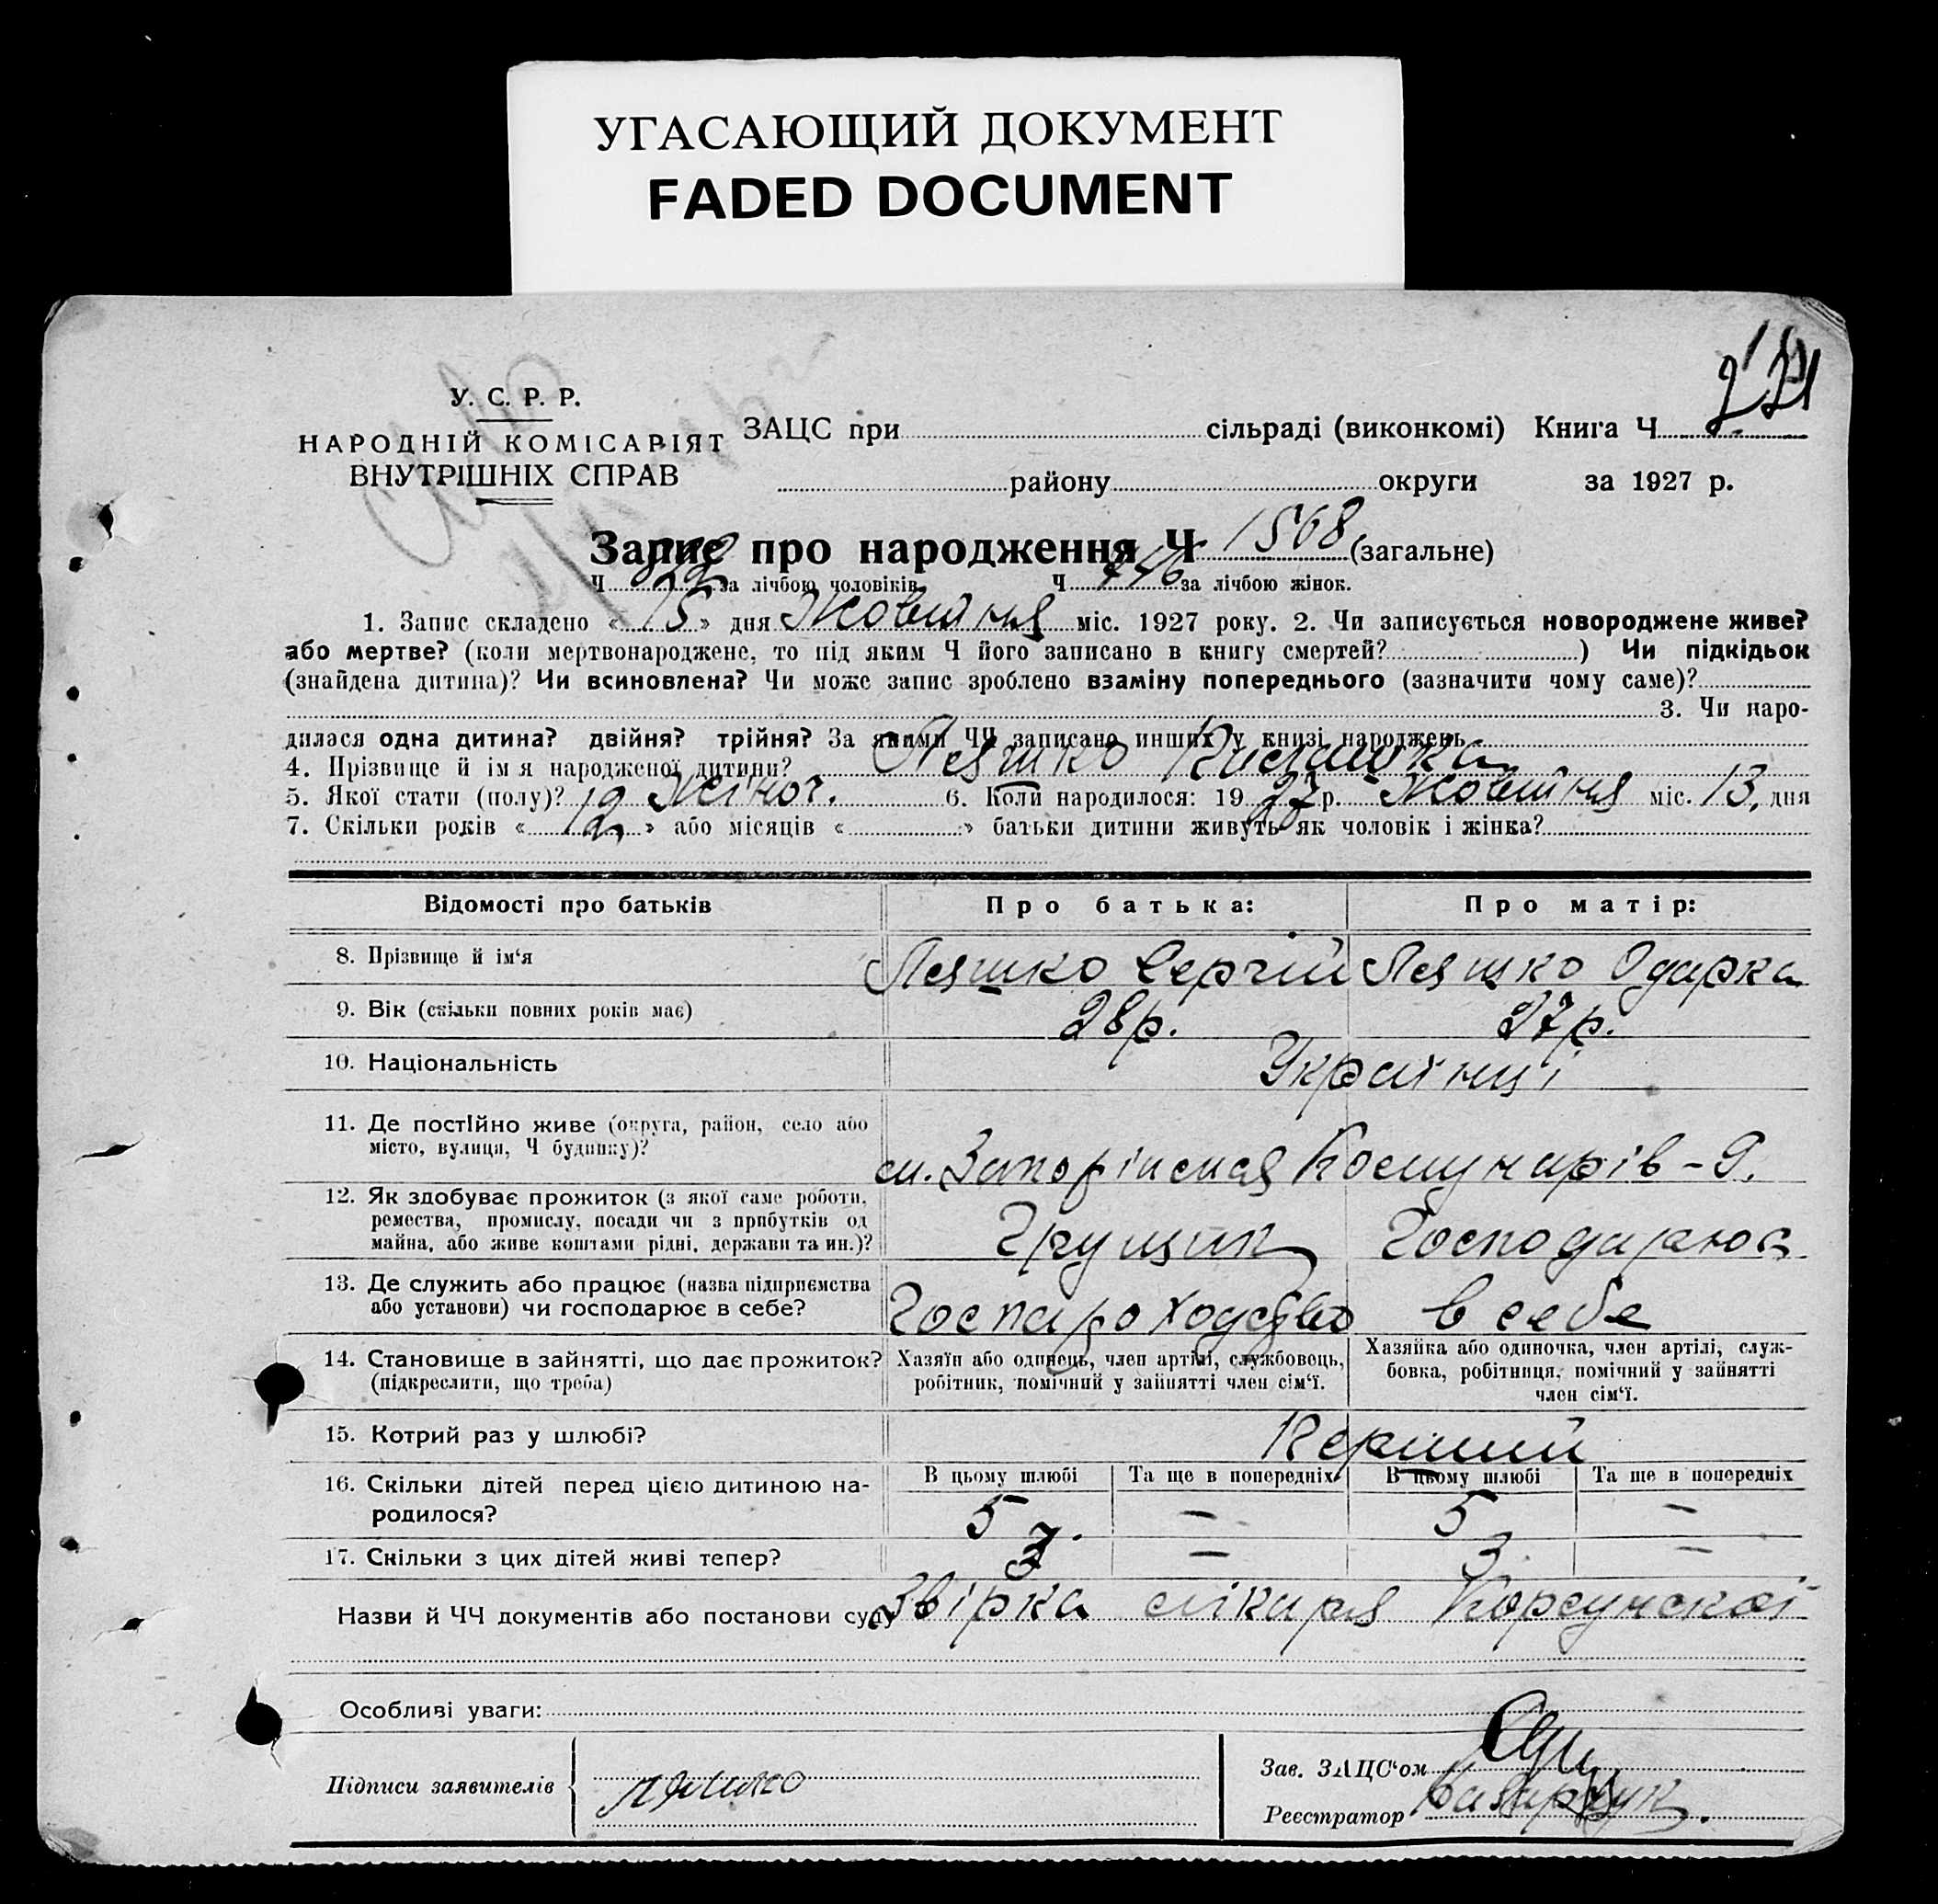 УГАСАЮЩИЙ ДОКУМЕНТ
FADED DOCUMENT
У. С. Р. Р.
НАРОДНІЙ КОМІСАРІЯТ
ВНУТРІШНІХ СПРАВ
ЗАЦС при сільраді (виконкомі) Книга Ч
району округи за 1927 р.
Запис про народження Ч 1568 (загальне)
Ч за лічбою чоловіків Ч 746 за лічбою жінок.
1. Запис складено « 15 » дня Жовтня міс. 1927 року. 2. Чи записується новороджене живе?
або мертве? (коли мертвонароджене, то під яким Ч його записано в книгу смертей? ) Чи підкідьок
(знайдена дитина)? Чи всиновлена? Чи може запис зроблено взаміну попереднього (зазначити чому саме)?
3. Чи наро-
дилася одна дитина? двійня? трійня? За якими ЧЧ записано инших у книзі народжень
4. Прізвище й ім'я народженої дитини? Ляшко
5. Якої стати (полу)? Жіноч. 6. Коли народилося: 19 27 р. Жовтня міс. 13. дня
7. Скільки років « 12 » або місяців « » батьки дитини живуть як чоловік і жінка?
Відомості про батьків Про батька: Про матір:
8. Прізвище й ім'я Ляшко Сергій Ляшко Одарка
9. Вік (скільки повних років має) 28 р. 27 р.
10. Національність Українці
11. Де постійно живе (округа, район, село або
місто, вулиця, Ч будинку)? Комунарів - 9.
12. Як здобуває прожиток (з якої саме роботи,
ремества, промислу, посади чи з прибутків од
майна, або живе коштами рідні, держави та ин.)? Грущик Господарює
13. Де служить або працює (назва підприємства
або установи) чи господарює в себе? Госпароходство в себе
14. Становище в зайнятті, що дає прожиток?
(підкреслити, що треба)
Хазяїн або одинець, член артілі, службовець,
робітник, помічний у зайнятті член сім'ї.
Хазяйка або одиночка, член артілі, служ-
бовка, робітниця, помічний у зайнятті
член сім'ї.
15. Котрий раз у шлюбі? Перший
В цьому шлюбі Та ще в попередніх В цьому шлюбі Та ще в попередніх
16. Скільки дітей перед цією дитиною на-
родилося? 5 — 5 —
17. Скільки з цих дітей живі тепер? 3 — 3 —
Назви й ЧЧ документів або постанови суду Звірка лікаря Корсунскої
Особливі уваги:
Підписи заявителів Ляшко
Зав. ЗАЦС'ом
Реєстратор